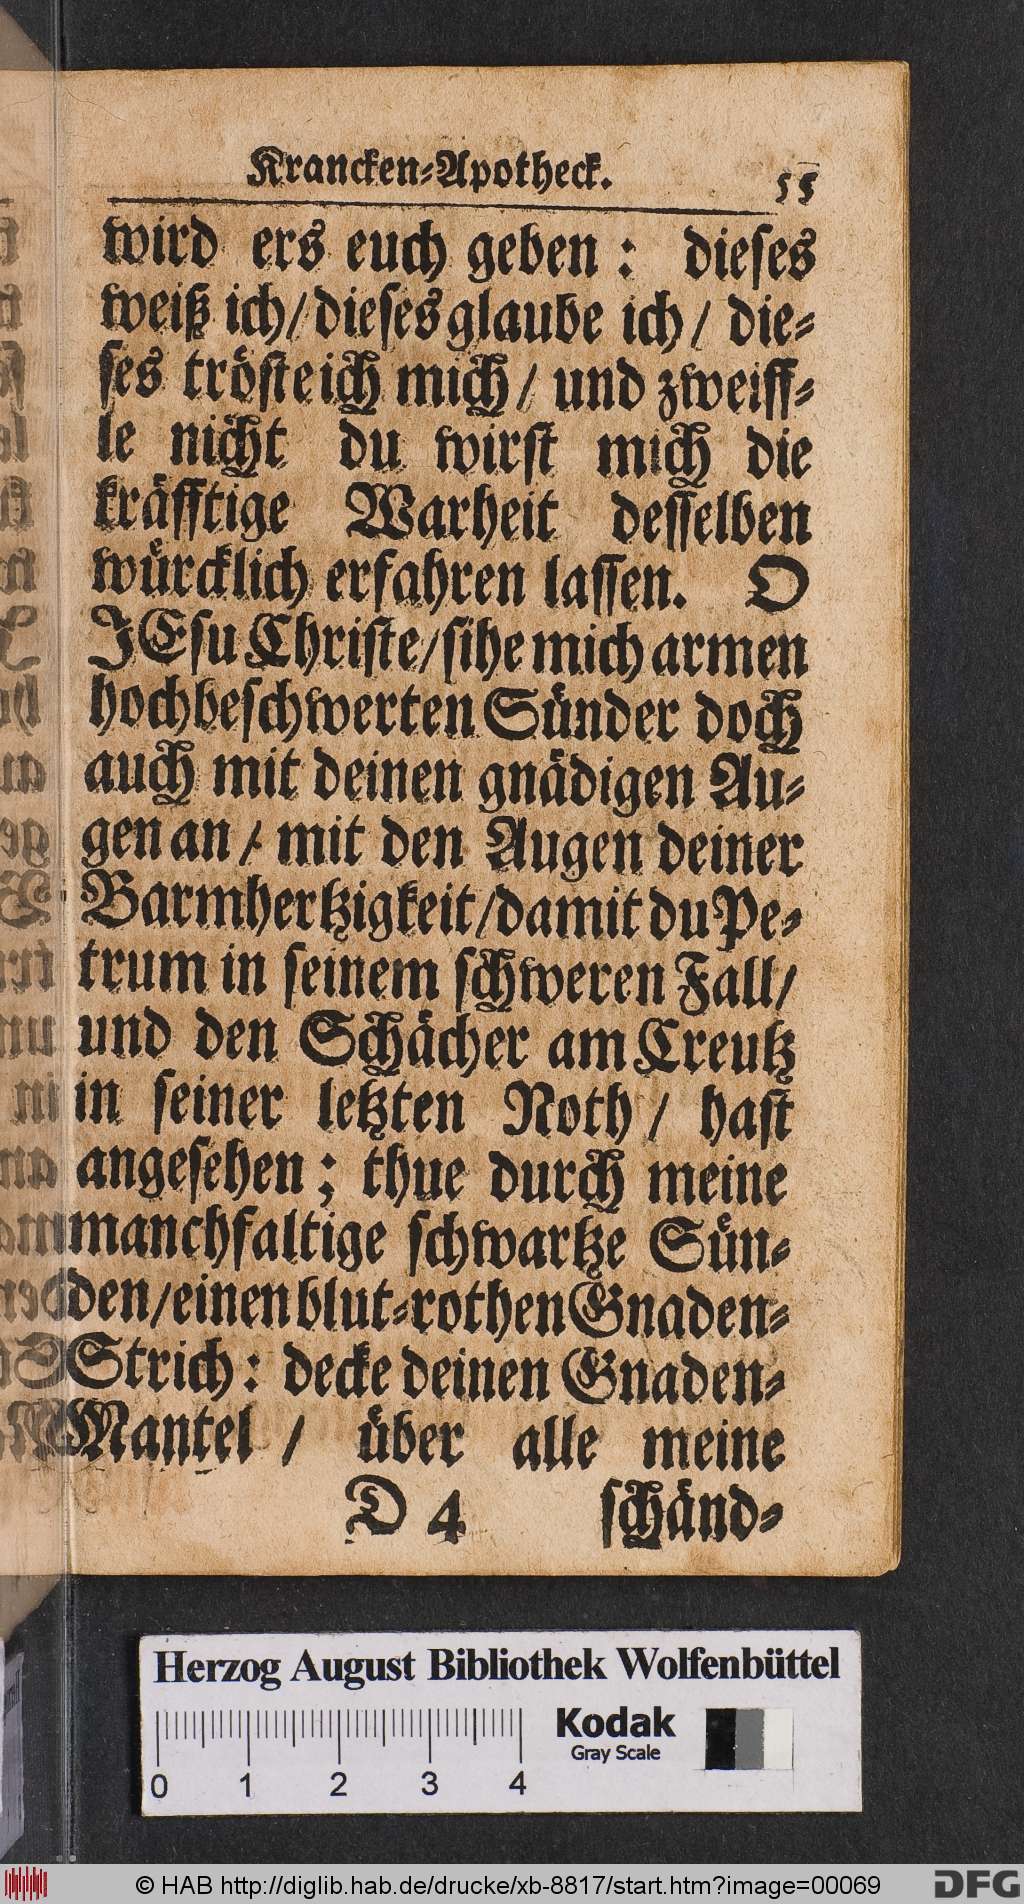 Krancken-Apotheck.
55
wird ers euch geben: dieses
weiß ich/dieses glaube ich/ die-
ses tröste ich mich/ und zweiff-
le nicht du wirst mich die
kräfftige Warheit desselben
würcklich erfahren lassen. O
JEsu Christe/sihe mich armen
hochbeschwerten Sünder doch
auch mit deinen gnädigen Au-
gen an/ mit den Augen deiner
Barmhertzigkeit/damit du Pe-
trum in seinem schweren Fall/
und den Schächer am Creutz
in seiner letzten Noth/ hast
angesehen; thue durch meine
manchfaltige schwartze Sün-
den/einen blut-rothen Gnaden-
Strich: decke deinen Gnaden-
Mantel/ über alle meine
D 4 schänd-
Herzog August Bibliothek Wolfenbüttel
Kodak
Gray Scale
0 1 2 3 4
© HAB http://diglib.hab.de/drucke/xb-8817/start.htm?image=00069
DFG